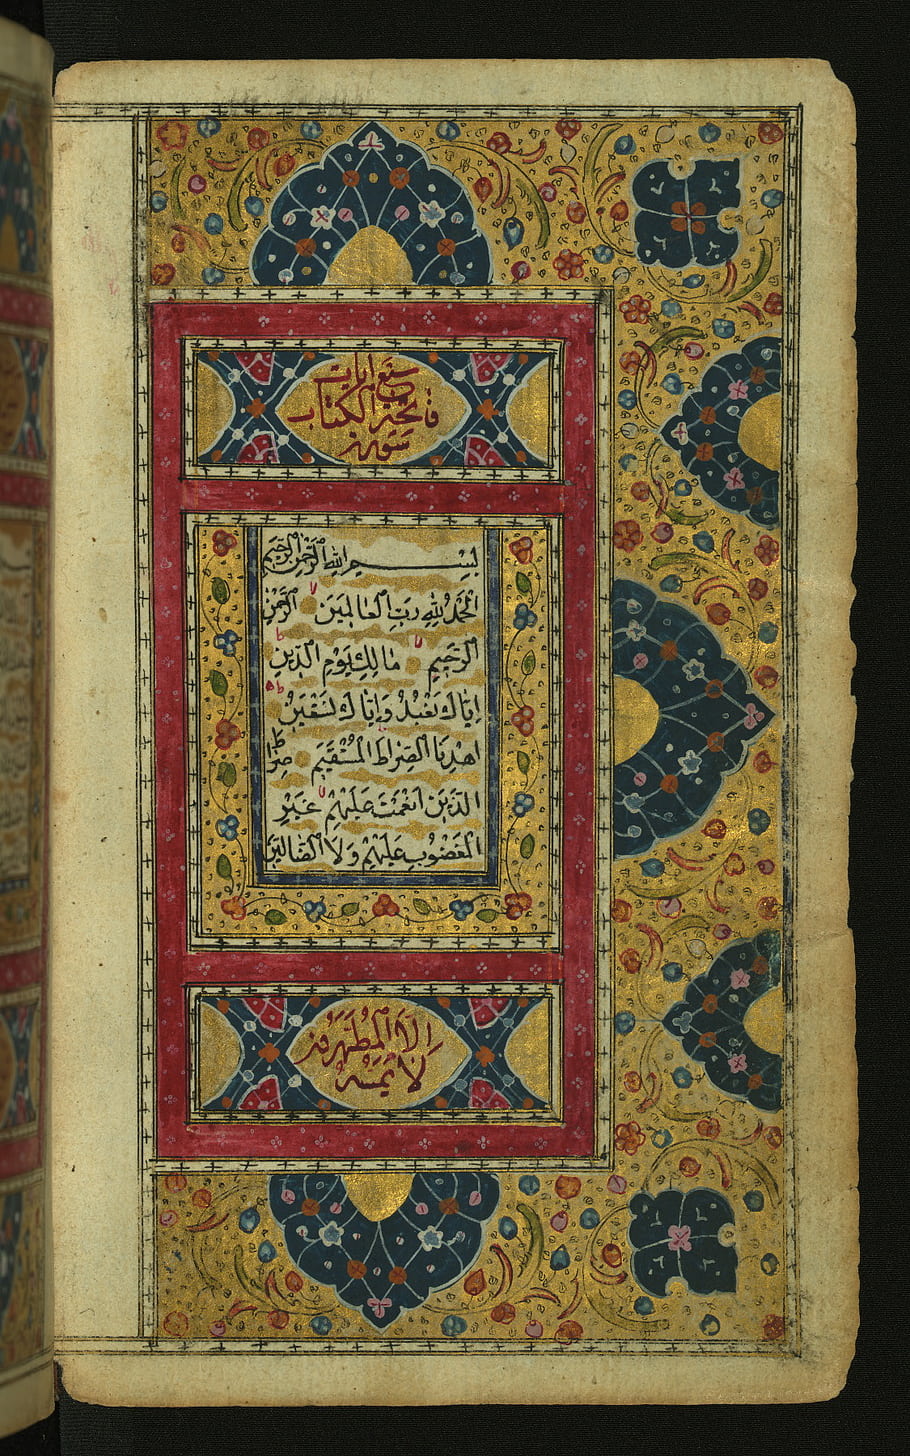 سبع ايات
فاتحة الكتاب
سورة
بِسْمِ اللهِ الرَّحْمٰنِ الرَّحِيمِ
اَلْحَمْدُ لِلّٰهِ رَبِّ الْعَالَمِينَ الرَّحْمٰنِ
الرَّحِيمِ مَالِكِ يَوْمِ الدِّينِ
اِيَّاكَ نَعْبُدُ وَاِيَّاكَ نَسْتَعِينُ
اِهْدِنَا الصِّرَاطَ الْمُسْتَقِيمَ صِرَاطَ
الَّذِينَ اَنْعَمْتَ عَلَيْهِمْ غَيْرِ
الْمَغْضُوبِ عَلَيْهِمْ وَلَا الضَّالِّينَ
اِلَّا الْمُطَهَّرُونَ
لَا يَمَسُّهُ